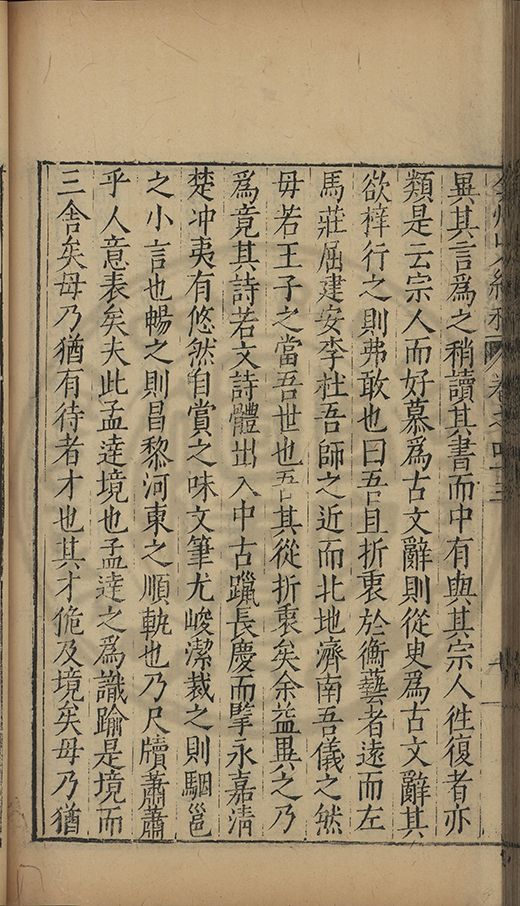 異其言爲之稍讀其書而中有與其宗人徃復者亦
類是云宗人而好慕爲古文辭則從史爲古文辭其
欲梓行之則弗敢也曰吾且折衷於衡藝者遠而左
馬莊屈建安李杜吾師之近而北地濟南吾儀之然
毋若王子之當吾世也吾其從折衷矣余益異之乃
爲竟其詩若文詩體出入中古躐長慶而擥永嘉清
楚冲夷有悠然自賞之味文筆尤峻潔裁之則駰邕
之小言也暢之則昌黎河東之順軌也乃尺牘蕭蕭
乎人意表矣夫此孟逹境也孟逹之爲識踰是境而
三舍矣毋乃猶有待者才也其才佹及境矣毋乃猶